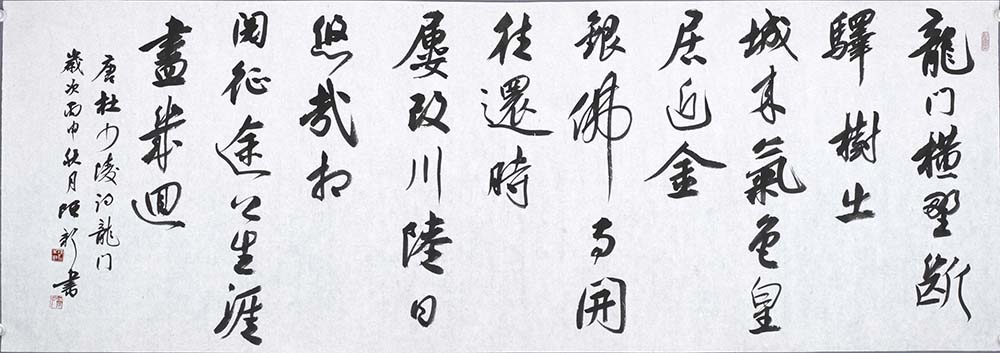 龍门横野斷
驛樹出
城来氣色皇
居近金
銀佛寺開
往還時
屢改川陸日
悠哉相
阅征途上生涯
盡幾迴
唐杜少陵诗龍门
歲次丙申秋月 书